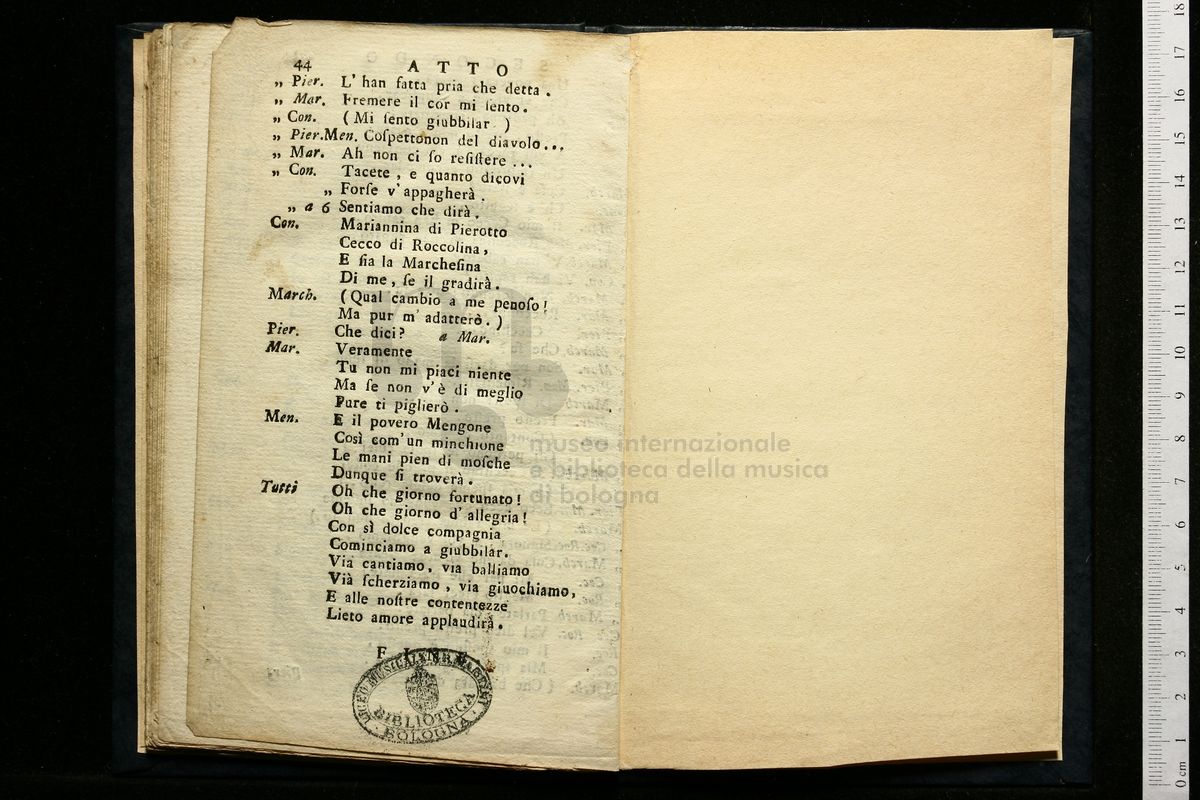 44 ATTO
„ Pier. L' han fatta pria che detta .
„ Mar. Fremere il cor mi ſento.
„ Con. ( Mi ſento giubbilar )
„ Pier.Men. Coſpettonon del diavolo...
„ Mar. Ah non ci ſo reſiſtere ...
„ Con. Tacete , e quanto dicovi
„ Forſe v'appagherà .
„ a 6 Sentiamo che dirà .
Con. Mariannina di Pierotto
Cecco di Roccolina ,
E ſia la Marcheſina
Di me , ſe il gradirà .
March. ( Qual cambio a me penoſo !
Ma pur m' adatterò . )
Pier. Che dici? a Mar.
Mar. Veramente
Tu non mi piaci niente
Ma ſe non v'è di meglio
Pure ti piglierò .
Men. E il povero Mengone
Così com'un minchione
Le mani pien di moſche
Dunque ſi troverà .
Tutti Oh che giorno fortunato !
Oh che giorno d' allegria !
Con sì dolce compagnia
Cominciamo a giubbilar.
Via cantiamo , via balliamo
Vià ſcherziamo , via giuochiamo,
E alle noſtre contentezze
Lieto amore applaudirà .
BIBLIOTECA
BOLOGNA
museo internazionale
e biblioteca della musica
di bologna
0 cm 1 2 3 4 5 6 7 8 9 10 11 12 13 14 15 16 17 18